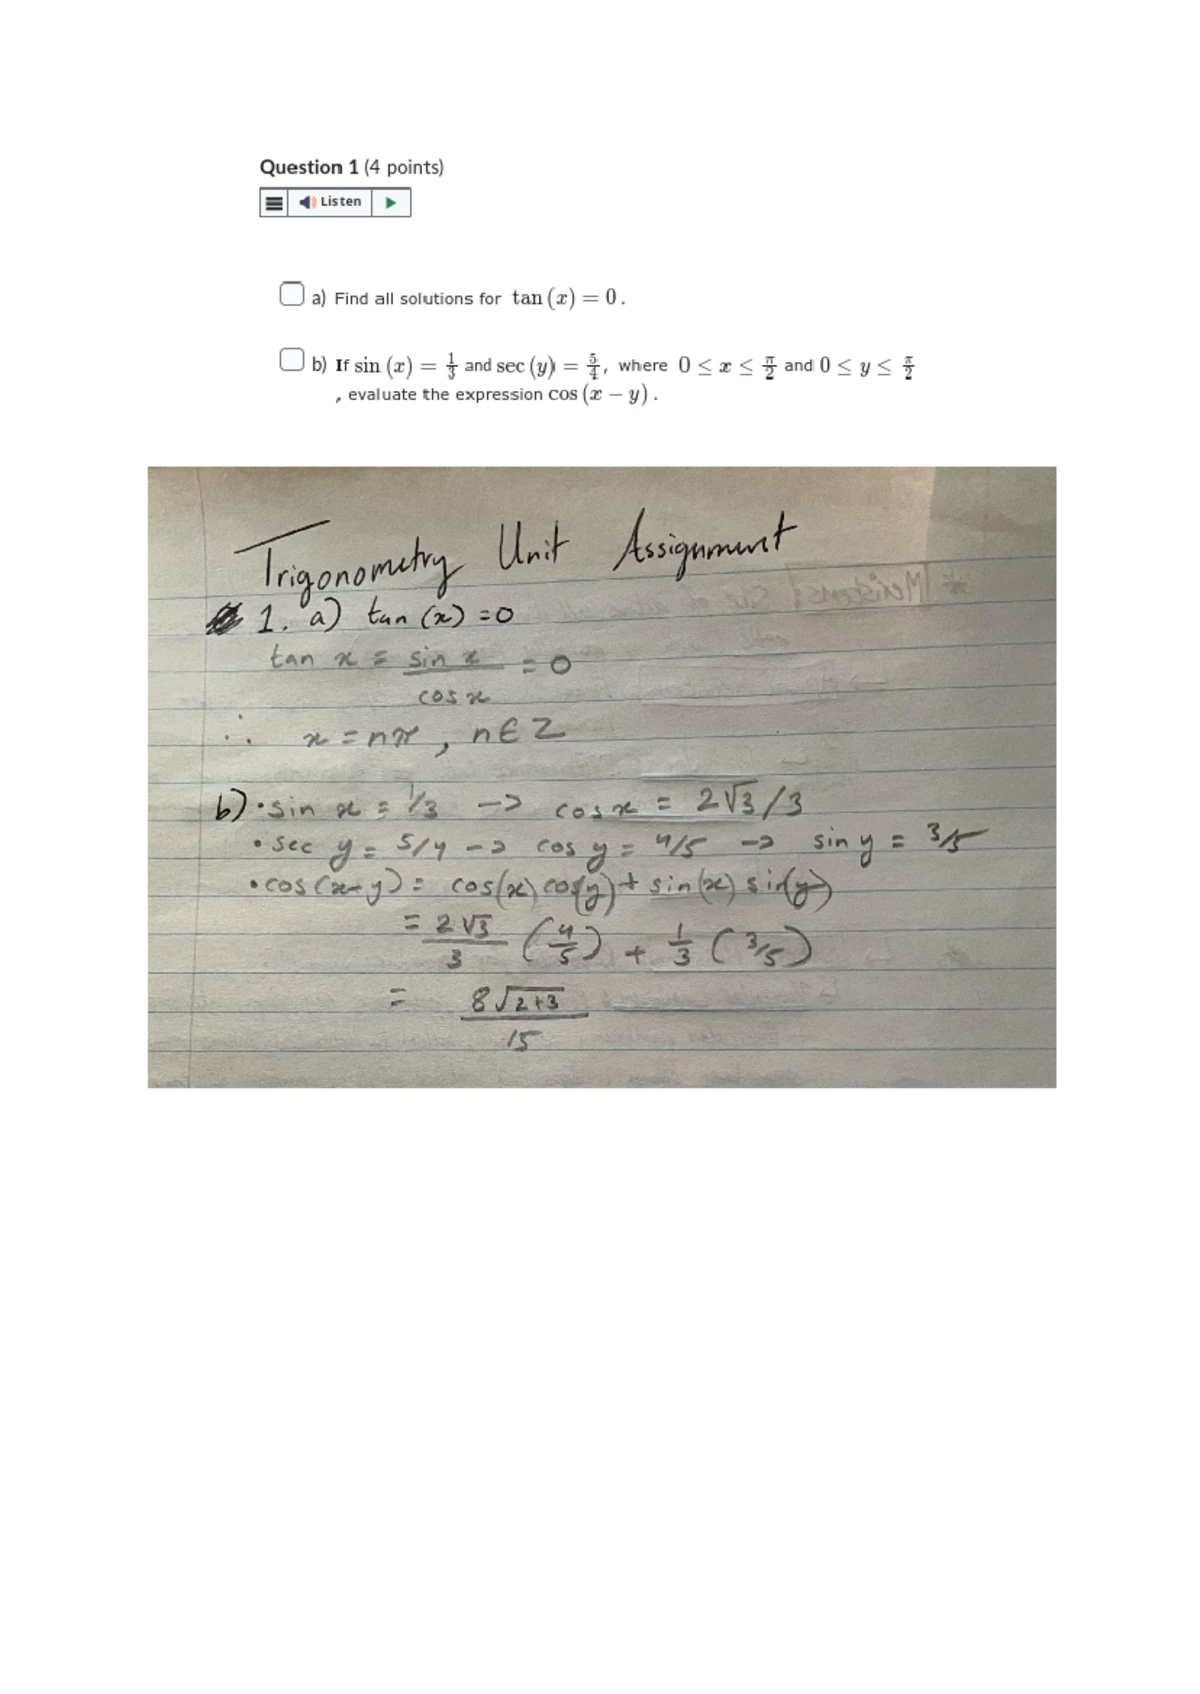 Question 1 (4 points)
Listen
a) Find all solutions for tan (x) = 0.
b) If sin (x) = 1/3 and sec (y) = 5/4, where 0 ≤ x ≤ π/2 and 0 ≤ y ≤ π/2
, evaluate the expression cos (x − y).
Trigonometry Unit Assignment
1. a) tan (x) = 0
tan x = sin x / cos x = 0
∴ x = nπ, n ∈ Z
b) • sin x = 1/3 -> cos x = 2√3/3
• sec y = 5/4 -> cos y = 4/5 -> sin y = 3/5
• cos(x-y) = cos(x) cos(y) + sin(x) sin(y)
= 2√3/3 (4/5) + 1/3 (3/5)
= 8√(2+3) / 15